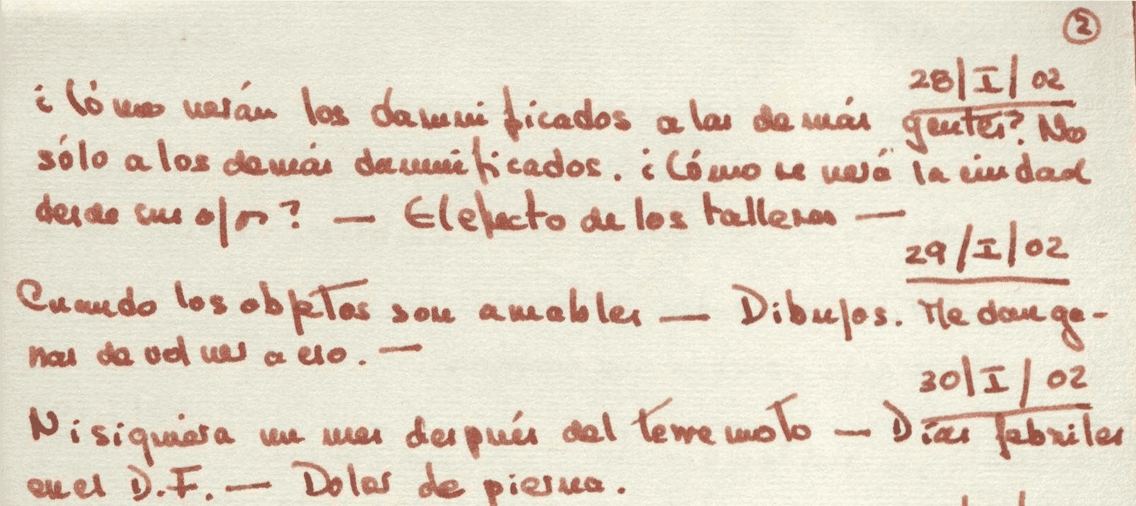 2
28/I/02
¿Cómo verán los damnificados a las demás gentes? No
sólo a los demás damnificados. ¿Cómo se verá la ciudad
desde sus ojos? — El efecto de los talleres —
29/I/02
Cuando los objetos son amables — Dibujos. Me dan ga-
nas de volver a eso. —
30/I/02
Ni siquiera un mes después del terremoto — Días febriles
en el D.F. — Dolor de pierna.